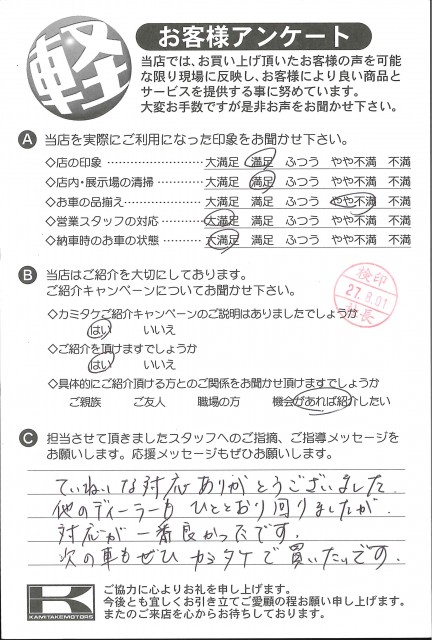 軽
お客様アンケート
当店では、お買い上げ頂いたお客様の声を可能
な限り現場に反映し、お客様により良い商品と
サービスを提供する事に努めています。
大変お手数ですが是非お声をお聞かせ下さい。
A 当店を実際にご利用になった印象をお聞かせ下さい。
◇店の印象 大満足 満足 ふつう やや不満 不満
◇店内・展示場の清掃 大満足 満足 ふつう やや不満 不満
◇お車の品揃え 大満足 満足 ふつう やや不満 不満
◇営業スタッフの対応 大満足 満足 ふつう やや不満 不満
◇納車時のお車の状態 大満足 満足 ふつう やや不満 不満
B 当店はご紹介を大切にしております。
ご紹介キャンペーンについてお聞かせ下さい。
検印
27.8.01
社長
◇カミタケご紹介キャンペーンのご説明はありましたでしょうか
はい いいえ
◇ご紹介を頂けますでしょうか
はい いいえ
◇具体的にご紹介頂ける方とのご関係をお聞かせ頂けますでしょうか
ご親族 ご友人 職場の方 機会があれば紹介したい
C 担当させて頂きましたスタッフへのご指摘、ご指導メッセージを
お願いします。応援メッセージもぜひお願いします。
ていねいな対応ありがとうございました。
他のディーラーもひととおり回りましたが、
対応が一番良かったです。
次の車もぜひカミタケで買いたいです。
K
KAMITAKEMOTORS
ご協力に心よりお礼を申し上げます。
今後とも宜しくお引き立てご愛顧の程お願い申し上げます。
またのご来店を心からお待ちしております。